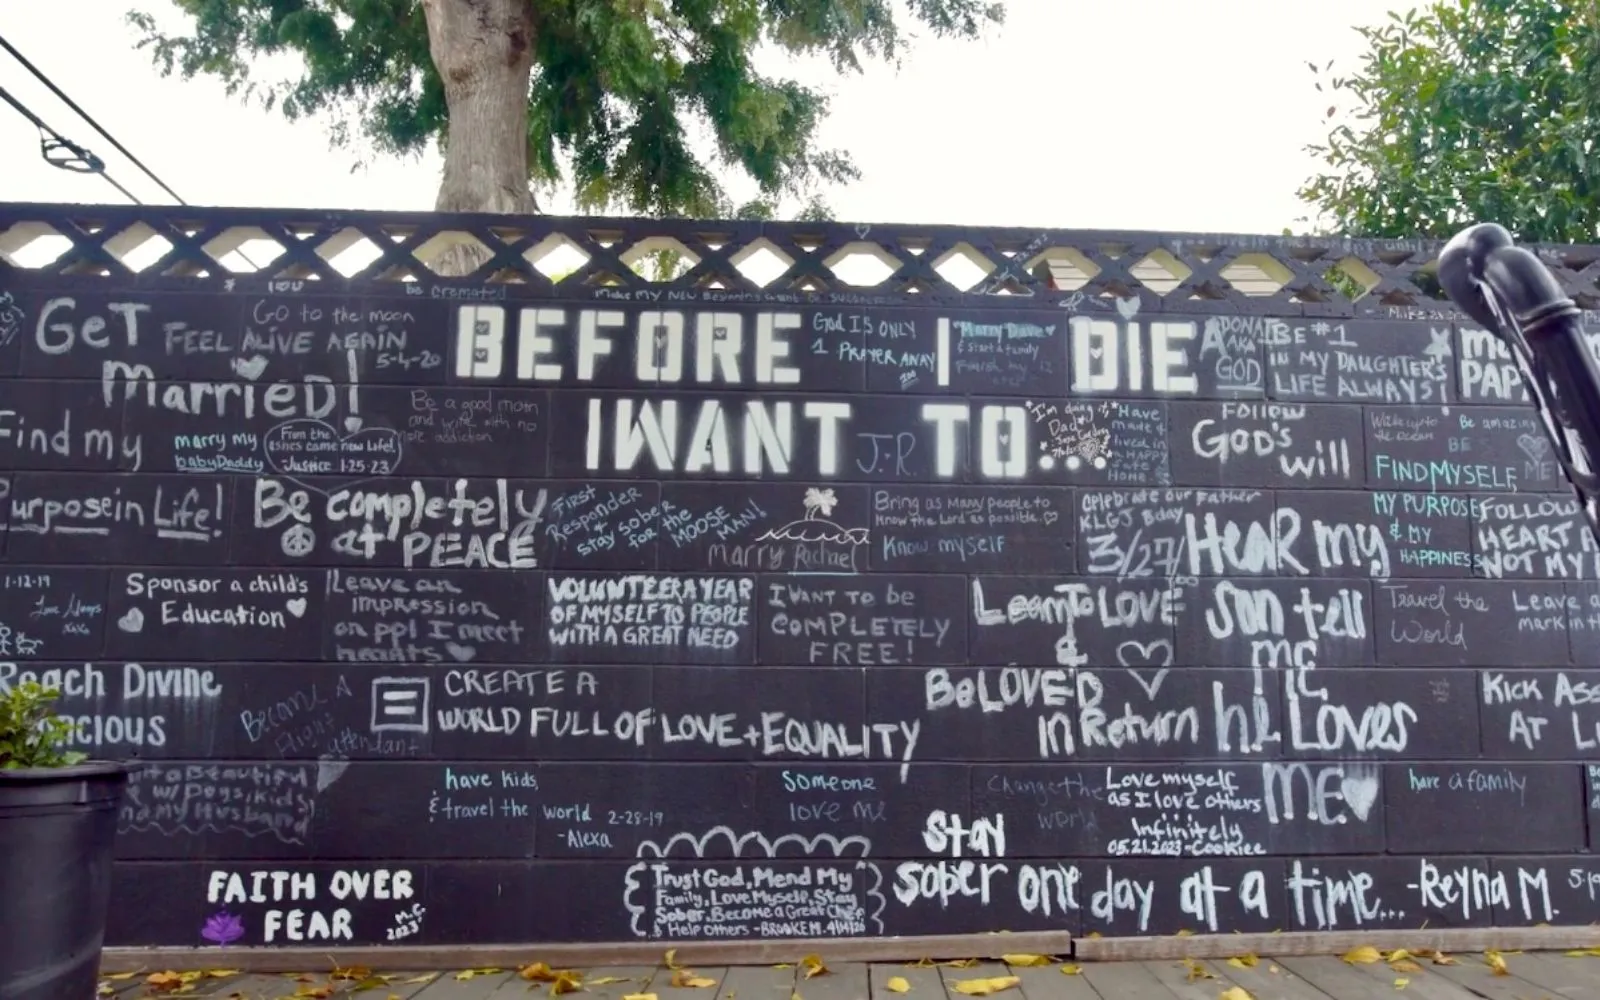 be cremated
Make My New Beginning
GeT
Married!
Go to the moon
FEEL ALIVE AGAIN
5-4-20
BEFORE I DIE
I WANT TO...
God IS ONLY
1 PRAYER AWAY
100
Marry Dave
& Start a family
ADONAI
AKA
GOD
BE #1
IN MY DAUGHTER'S
LIFE ALWAYS!
Find my
Purpose in Life!
marry my
babyDaddy
From the
ashes came new Life!
Justice 1-25-23
Be a good mom
J.R.
I'm doing it,
Dad
Follow
God's
will
Be amazing
BE
ME
FINDMYSELF,
MY PURPOSE
& MY
HAPPINESS
Be completely
at PEACE
First
Responder
stay sober
for the
MOOSE
MAN!
marry Rachael
Bring as many people to
know the Lord as possible.
Know myself
Celebrate our Father
KLGJ Bday
3/27/
HeaR my
Son tell
me
he Loves
ME
FOLLOW
HEART
NOT MY
1-12-19
Love Always
Sponsor a child's
Education
Leave an
impression
on ppl I meet
hearts
VOLUNTEER A YEAR
OF MYSELF TO PEOPLE
WITH A GREAT NEED
I WANT TO be
COMPLETELY
FREE!
Learn To LOVE
&
BeLOVE'D
in Return
Travel the
World
Leave a
mark in th
Reach Divine
Become A
Flight
attendant
CREATE A
WORLD FULL OF LOVE + EQUALITY
Kick Ass
AT L
a Beautiful
w/ Dogs, kids,
and My Husband
have kids,
& travel the world 2-28-19
-Alexa
Someone
love me
Change the
world
Love myself
as I love others
Infinitely
05.21.2023 -Cookiee
have a family
FAITH OVER
FEAR
M.C.
2023
Trust God, Mend My
Family, Love Myself, Stay
Sober, Become a Great Chef
& Help Others -BROOKE M. 4/14/26
Stay
sober one day at a time... -Reyna M.